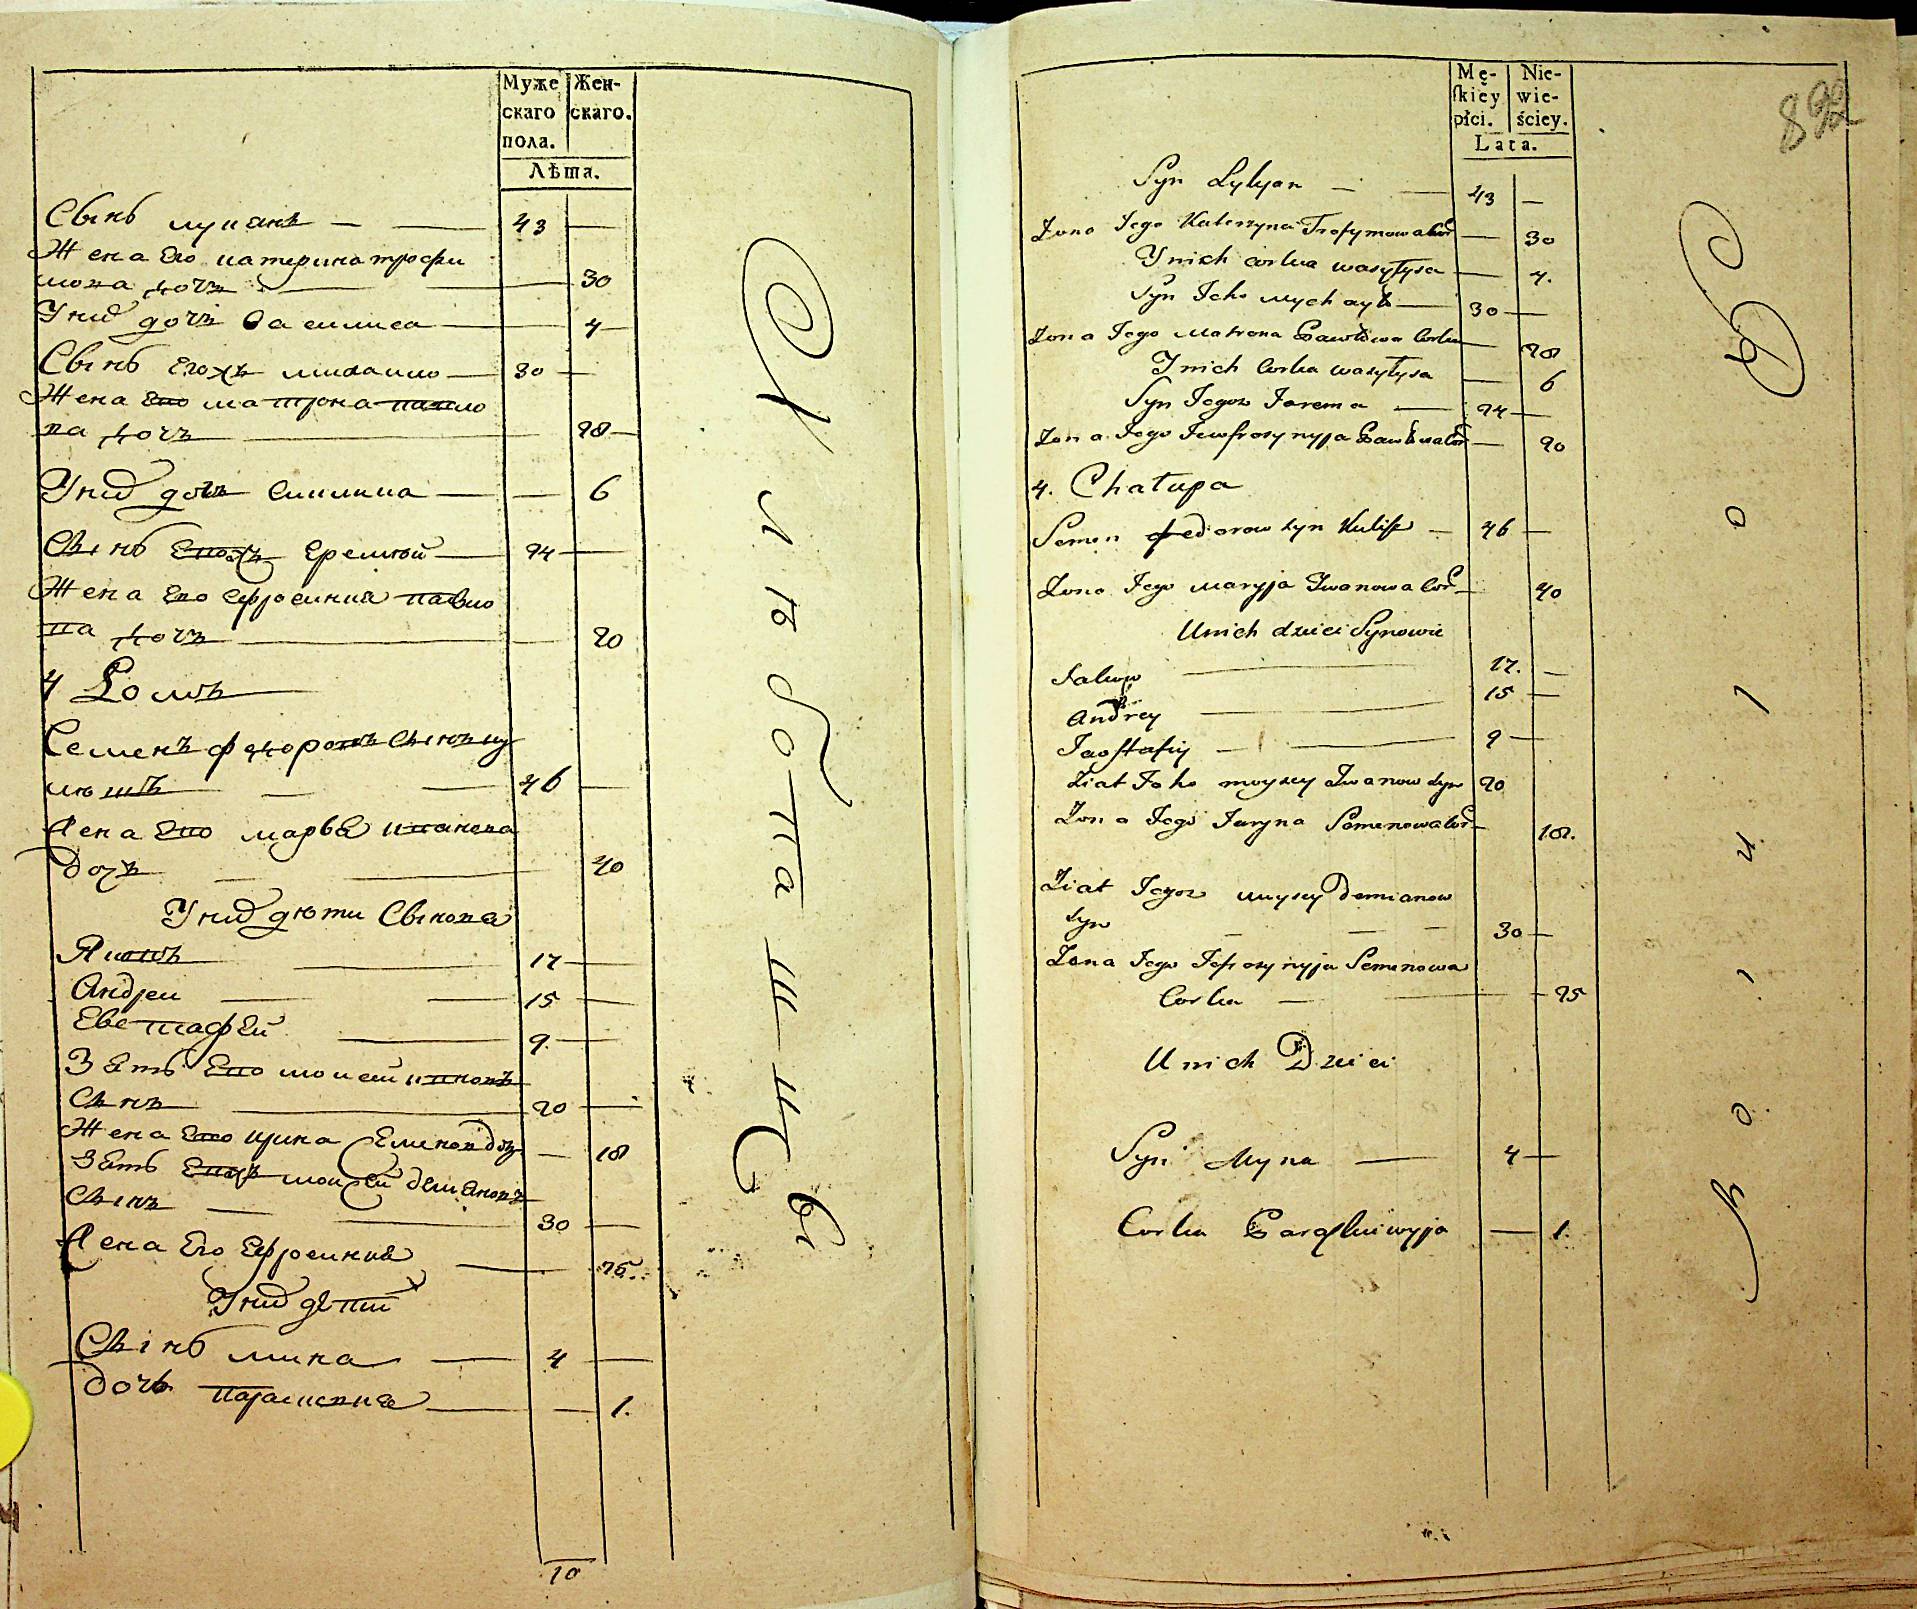 Муже
скаго
пола.
Жен-
скаго.
Лѣта.
Сынъ лукянъ 43
Жена Его катерина трофи
мова дочь 30
Уних дочь Василиса 4
Сынъ Егожъ михаило 30
Жена Его матрона павло
ва дочь 28
Уних дочь 6
Сынъ Егожъ Еремѣй 24
Жена Его Ефросиния павло
ва дочь 20
4 Домъ
Семенъ федоровъ сынъ ку
лешъ 46
Жена Его марья иванова
дочь 40
Уних дети Сынове
Яковъ 17
Андреи 15
Евстафей 9
Зять Его моисей ивановъ
сынъ 20
Жена Его ирина Семенова доч 18
Зять Егожъ моисей демяновъ
сынъ 30
Жена Его Ефросиния 25.
Уних детей
Сынъ мина 4
дочь парасковия 1.
10
Mę-
skiey
płci.
Nie-
wie-
ściey.
Lata.
892
Syn Łukyan 43
Zona Jego Katerzyna Trofymowa Cor 30
Unich Corka wasylysa 4.
Syn Jeho Mychayło 30
Zona Jego Matrona Pawłowa Corka 28
Unich Corka wasylysa 6
Syn Jegoz Jarema 24
Zona Jego Jewfrosynyja Pawłowa Cor 20
4. Chałupa
Semen Fedorow Syn Kulisz 46
Zona Jego Maryja Iwanowa Cor 40
Unich dzieci Synowie
Jakow 17.
Andrey 15
Jaostafiy 9
Ziat Jeho moysey Iwanow Syn 20
Zona Jego Jaryna Semenowa Cor 18.
Ziat Jegoz moysey Demianow
Syn 30
Zona Jego Jefrosynyja Semenowa
Corka 25
Unich Dzieci
Syn Myna 4
Corka Paraskiwyja 1.